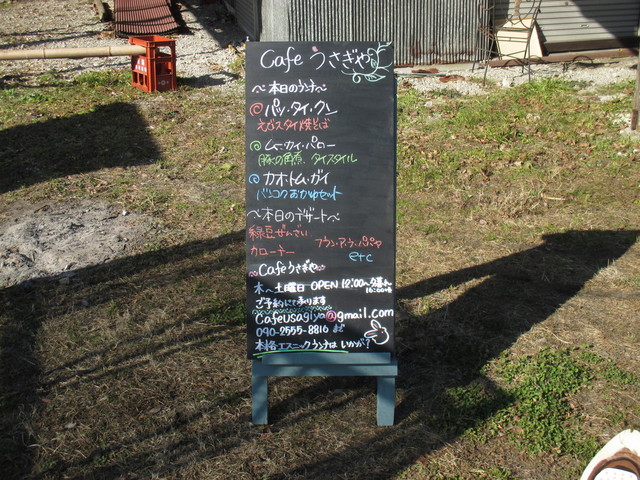 Cafe うさぎや
〜本日のランチ〜
@パッ・タイ・クン
えびタイ焼そば
@ムー・カイ・パロー
豚の角煮、タイスタイル
@カオ・トム・ガイ
バンコクおかゆセット
〜本日のデザート〜
緑豆ぜんざい
カローチー
etc
Cafe うさぎや
木〜土曜日 OPEN 12:00〜
ご予約にて承ります
Cafeusagiya@gmail.com
090-2555-8816 まで
本格エスニックランチはいかが?